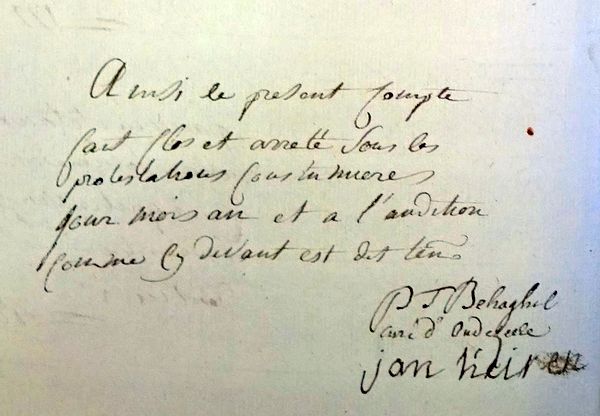 Ainsi le present Compte
fait Clos et arreté Sous les
protestations Coustumieres
jour mois an et a l'audition
Comme Cy devant est dit
P J Behaghel
curé d'
jan